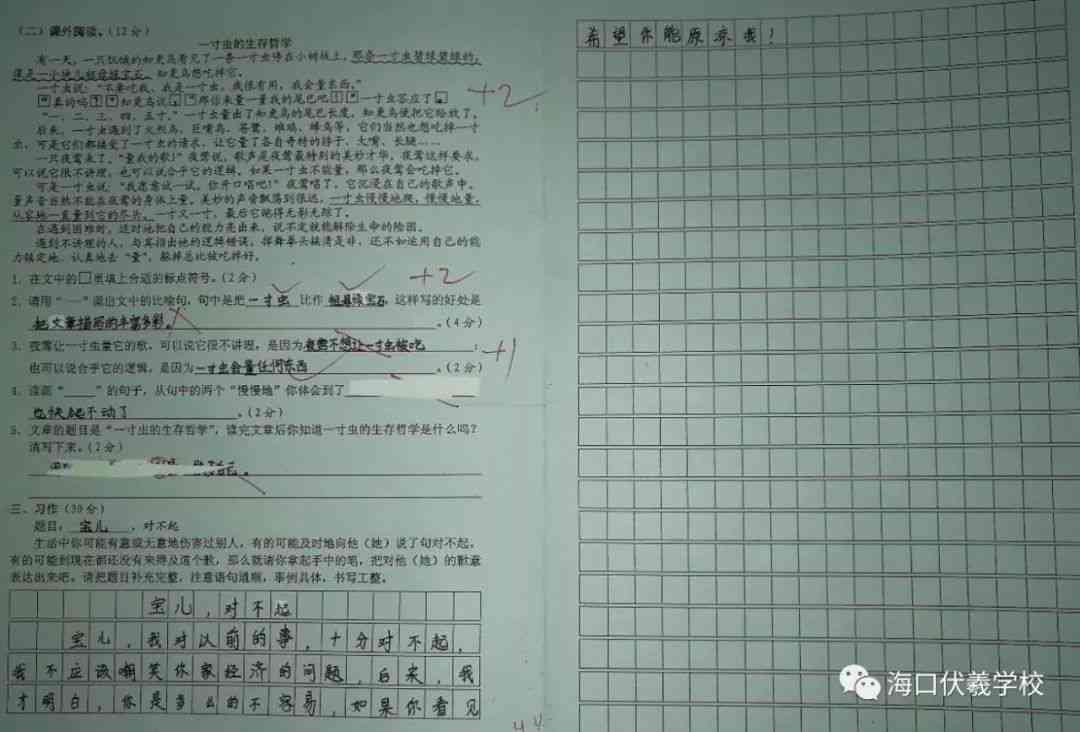 (二)课外阅读。(12分)
一寸虫的生存哲学
有一天,一只饥饿的知更鸟看见了一条一寸虫停在小树枝上,那条一寸虫碧绿碧绿的,
还是一个块儿祖母绿宝石。知更鸟想吃掉它。
一寸虫说:“不要吃我,我是一寸虫,我很有用,我会量东西。”
“真的吗?”知更鸟说,“那你来量一量我的尾巴吧!”一寸虫答应了。
“一、二、三、四、五寸。”一寸虫量出了知更鸟的尾巴长度,知更鸟便把它给放了。
后来,一寸虫遇到了火烈鸟、巨嘴鸟、苍鹭、雉鸡、蜂鸟等,它们当然也想吃掉一寸
虫,可是它们都接受了一寸虫的请求,让它量了各自奇特的脖子、大嘴、长腿……
一只夜莺来了。“量我的歌!”夜莺说。歌声是夜莺最特别的美妙才华。夜莺这样要求,
可以说它很不讲理,也可以说合乎它的逻辑。如果一寸虫不能量,那么夜莺会吃掉它。
可是一寸虫说:“我愿意试一试。你开口唱吧!”夜莺唱了,它沉浸在自己的歌声中。
量声音当然不能在夜莺的身体上量。美妙的声音飘荡到很远,一寸虫慢慢地爬,慢慢地量,
从容地一直量到它的尽头。一寸又一寸,最后它跑得无影无踪了。
在遇到困难时,适时地把自己的能力亮出来,说不定就能解除生命的险困。
遇到不讲理的人,与其指出他的逻辑错误,挥舞拳头搞清是非,还不如运用自己的能
力镇定地、认真地去“量”,躲掉总比被吃掉好。
1. 在文中的□里填上合适的标点符号。(2分)
2. 请用“——”画出文中的比喻句,句中是把一寸虫比作祖母绿宝石,这样写的好处是
把文章描写的丰富多彩。。(4分)
3. 夜莺让一寸虫量它的歌,可以说它很不讲理,是因为夜莺不想让一寸虫被吃;
也可以说合乎它的逻辑,是因为一寸虫会量任何东西。(2分)
4. 读画“____”的句子,从句中的两个“慢慢地”你体会到了
也快爬不动了。(2分)
5. 文章的题目是“一寸虫的生存哲学”,读完文章后你知道一寸虫的生存哲学是什么吗?
请写下来。(2分)
三、习作(30分)
题目:宝儿,对不起
生活中你可能有意或无意地伤害过别人,有的可能及时地向他(她)说了句对不起,
有的可能到现在都还没有来得及道个歉,那么就请你拿起手中的笔,把对他(她)的歉意
表达出来吧。请把题目补充完整,注意语句通顺,事例具体,书写工整。
宝儿,对不起
宝儿,我对以前的事,十分对不起,
我不应该嘲笑你家经济的问题,后来,我
才明白,你是多么的不容易,如果你看见
希望你能原凉我!
+2
+2
+1
海口伏羲学校